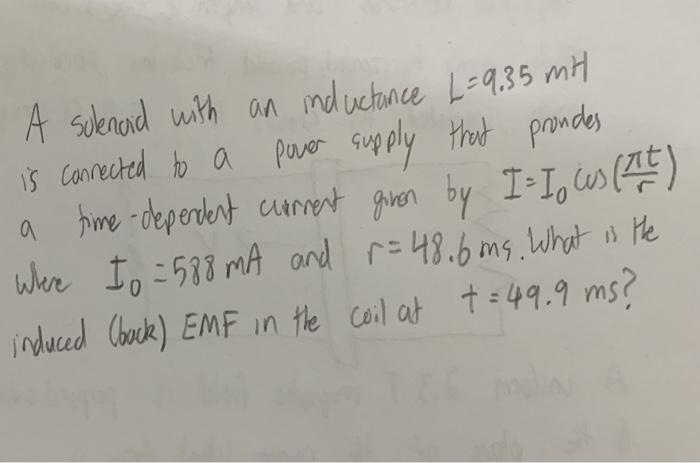 A solenoid with an inductance L=9.35 mH
is connected to a power supply that provides
a time-dependent current given by I=I₀ cos(πt/r)
where I₀=588 mA and r=48.6 ms. What is the
induced (back) EMF in the coil at t=49.9 ms?